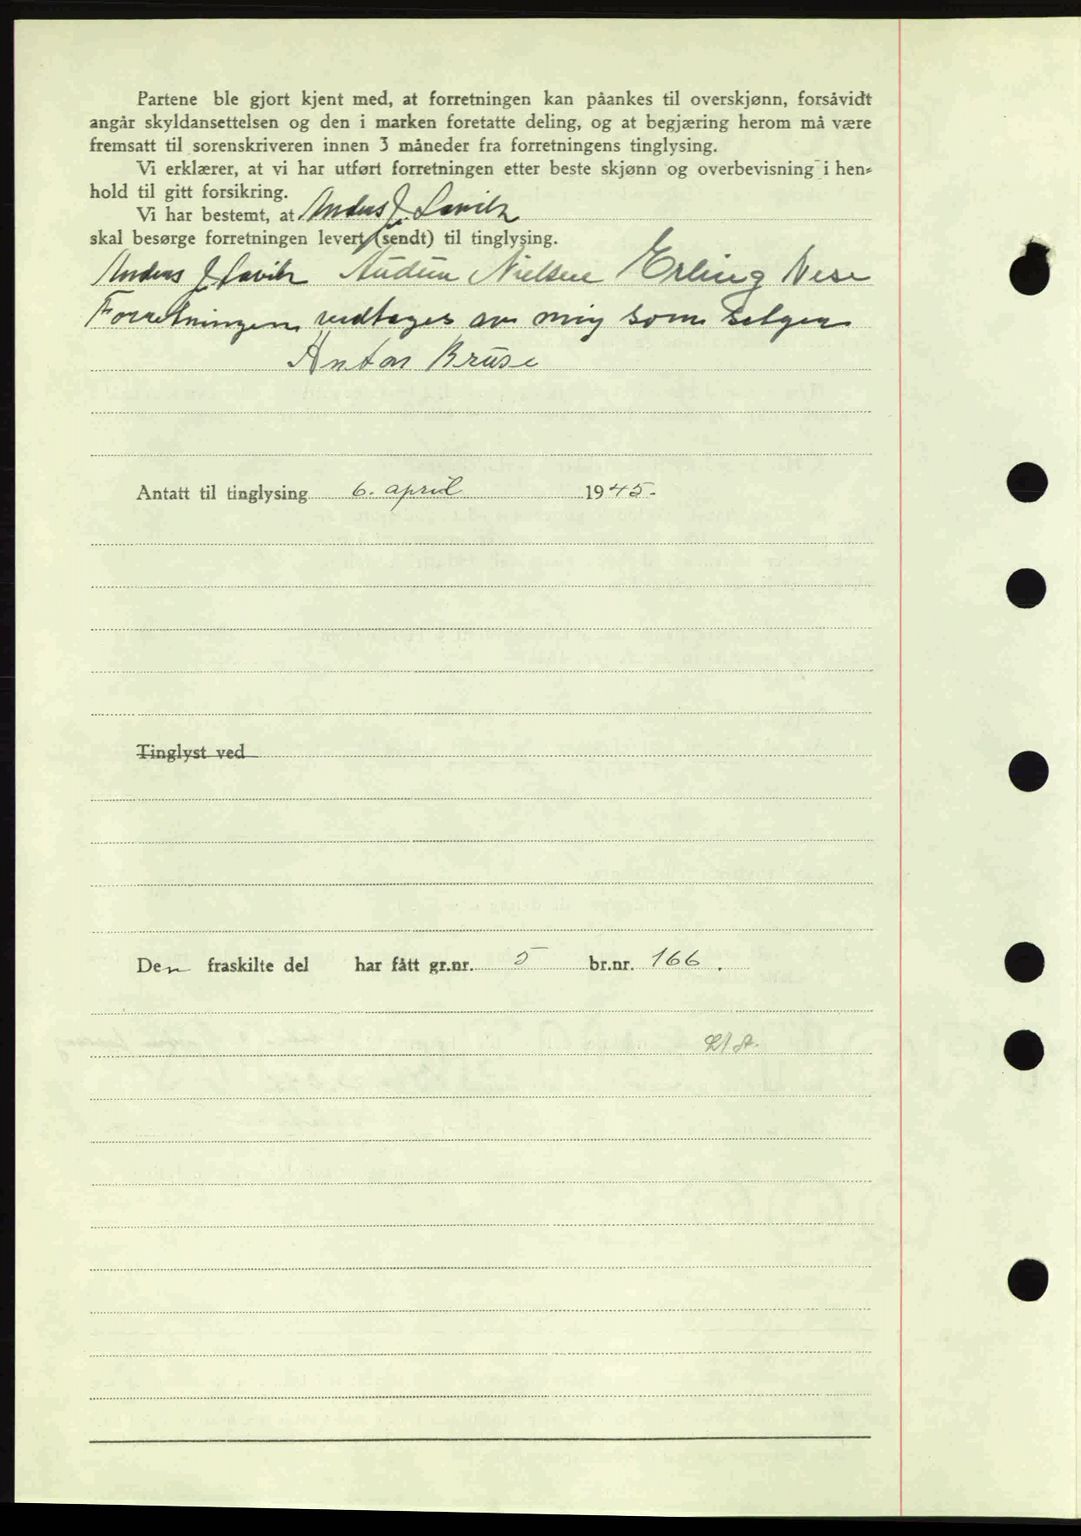 Partene ble gjort kjent med, at forretningen kan påankes til overskjønn, forsåvidt
angår skyldansettelsen og den i marken foretatte deling, og at begjæring herom må være
fremsatt til sorenskriveren innen 3 måneder fra forretningens tinglysing.
Vi erklærer, at vi har utført forretningen etter beste skjønn og overbevisning i hen-
hold til gitt forsikring.
Vi har bestemt, at Anders J. Lavik
skal besørge forretningen levert (sendt) til tinglysing.
Anders J Lavik Audun Nielsen Erling Nese
Forretningen vedtages av mig som selger
Anton Bruse
Antatt til tinglysing 6. april 1945.
Tinglyst ved
Den fraskilte del har fått gr.nr. 5 br.nr. 166.